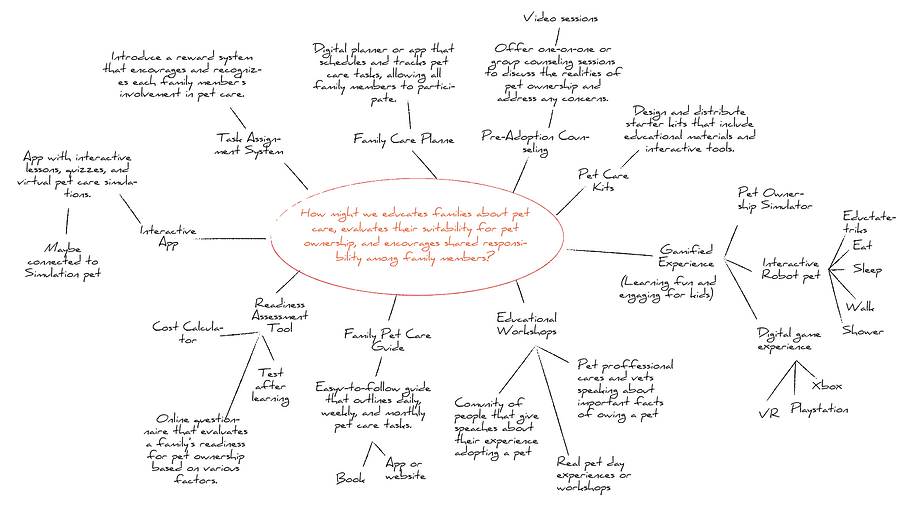 Video sessions
Introduce a reward system
that encourages and recogniz-
es each family member's
involvement in pet care.
Digital planner or app that
schedules and tracks pet
care tasks, allowing all
family members to partici-
pate.
Offer one-on-one or
group counseling sessions
to discuss the realities of
pet ownership and
address any concerns.
Design and distribute
starter kits that include
educational materials and
interactive tools.
Task Assign-
ment System
Family Care Planne
Pre-Adoption Coun-
seling
Pet Care
Kits
App with interactive
lessons, quizzes, and
virtual pet care simula-
tions.
Maybe
connected to
Simulation pet
Interactive
App
How might we educates families about pet
care, evaluates their suitability for pet
ownership, and encourages shared responsi-
bility among family members?
Pet Owner-
ship Simulator
Gamified
Experience
(Learning fun and
engaging for kids)
Interactive
Robot pet
Eductate-
triks
Eat
Sleep
Walk
Shower
Digital game
experience
VR
Playstation
Xbox
Readiness
Assessment
Tool
Cost Calcula-
tor
Test
after
learning
Online question-
naire that evaluates
a family's readiness
for pet ownership
based on various
factors.
Family Pet Care
Guide
Easyv-to-follow guide
that outlines daily,
weekly, and monthly
pet care tasks.
Book
App or
website
Educational
Workshops
Comunity of
people that give
speaches about
their experience
adopting a pet
Pet proffessional
cares and vets
speaking about
important facts
of owing a pet
Real pet day
experiences or
workshops